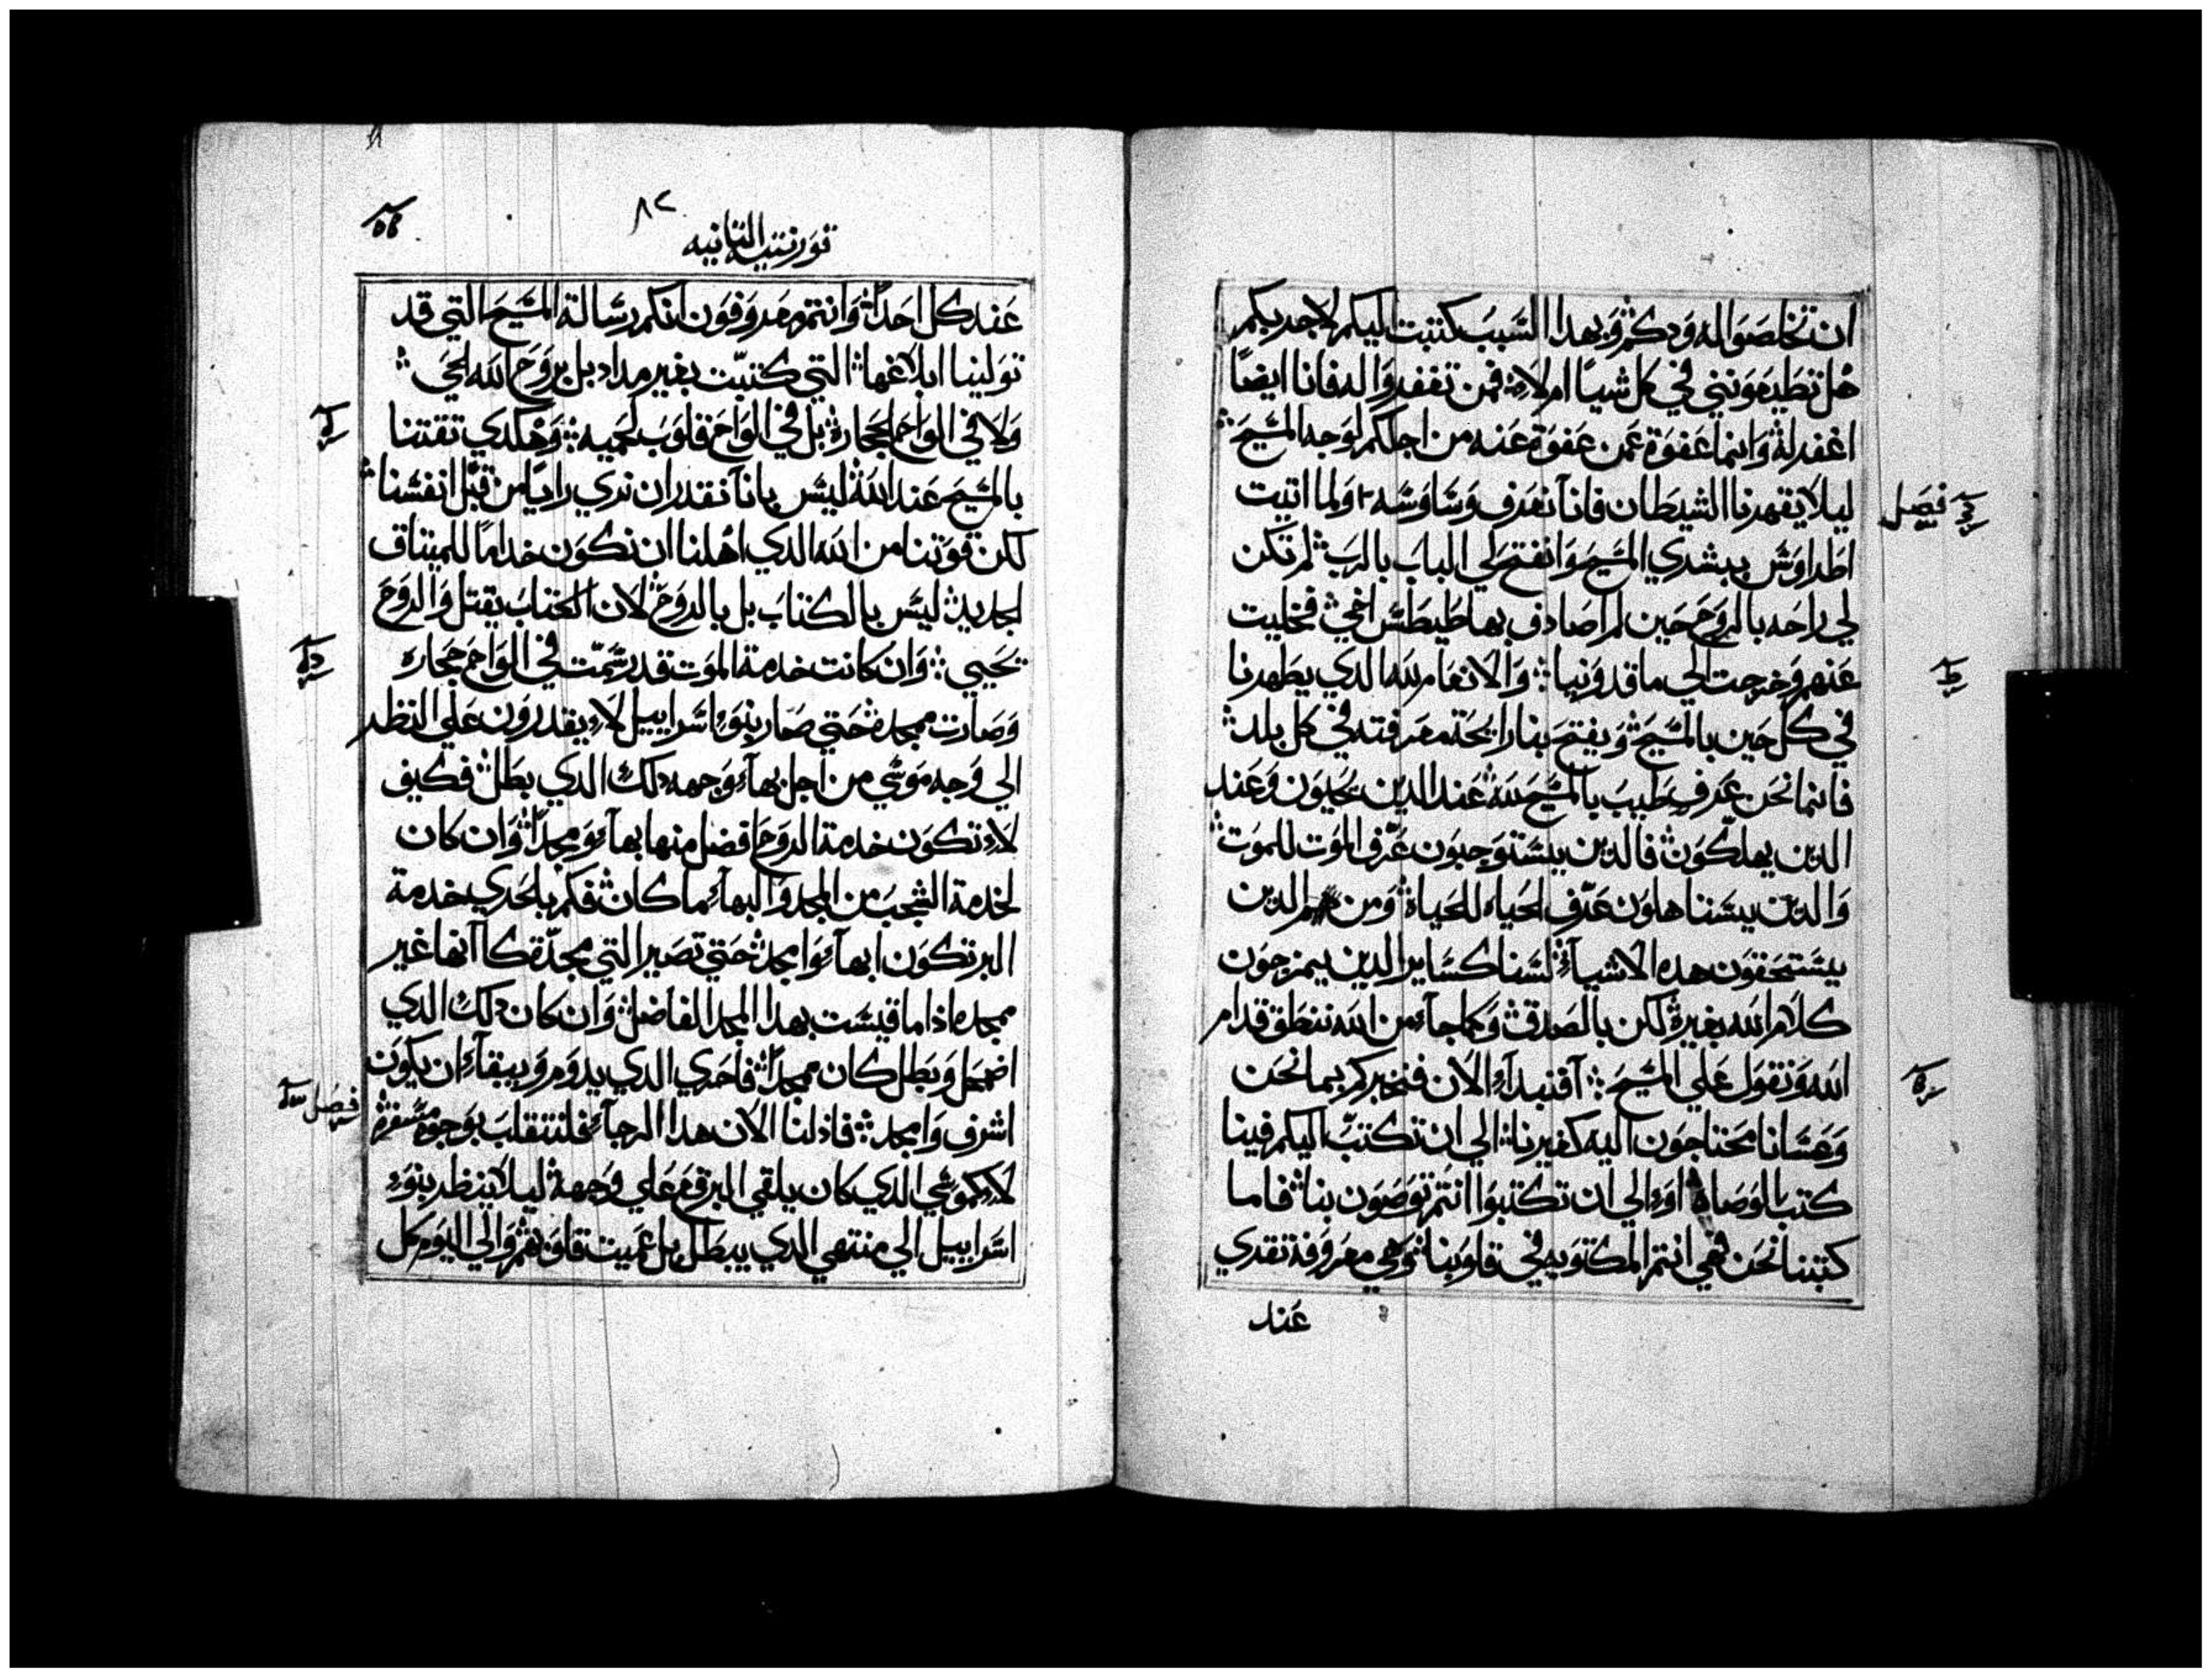 ان تخلصوا له ودكم وبهدا السبب كتبت اليكم لاجربكم
هل تطيعونني في كل شيا ام لا فمن تغفروا له فانا ايضا
اغفر له وانما عفوة عمن عفوة عنه من اجلكم لوجه المسيح
ليلا يقهرنا الشيطان فانا نعرف وساوسه ولما اتيت
فصل
اطراوس ببشري المسيح وانفتح لي الباب بالرب لم تكن
لي راحه بالروح حين لم اصادف بها طيطس اخي فخليت
عنهم وخرجت الي ماقدونيا والانعام لله الدي يظهرنا
في كل حين بالمسيح ويفتح بنا رايحة معرفته في كل بلد
فانما نحن عرف طيب بالمسيح لله عند الدين يحيون وعند
الدين يهلكون فالدين يستوجبون عرف الموت للموت
والدين يستاهلون عرف الحياه للحياة ومن هم الدين
يستحقون هده الاشيا لسنا كساير الدين يمزجون
كلام الله بغيره لكن بالصدق وكما جا من الله ننطق قدام
الله ونقول علي المسيح افنبدا الان فنخبركم بما نحن
وعسانا محتاجون اليه كغيرنا الي ان تكتب اليكم فينا
كتب الوصاه او الي ان تكتبوا انتم توصون بنا فاما
كتبنا نحن فهي انتم المكتوبه في قلوبنا وهي معروفة تقري
عند
٨٢
قورنتيه الثانيه
عند كل احد وانتم معروفون انكم رسالة المسيح التي قد
تولينا ابلاغها التي كتبت بغير مداد بل بروح الله الحي
ولا في الواح الحجاره بل في الواح قلوب لحميه وهكدي تقتنا
بالمسيح عند الله ليس بانا نقدر ان نري رايا من قبل انفسنا
لكن قوتنا من الله الدي اهلنا ان نكون خداما للميتاق
الجديد ليس بالكتاب بل بالروح لان الكتاب يقتل والروح
تحيي وان كانت خدمة الموت قد رسمت في الواح حجاره
وصارت ممجده حتي صار بنو اسراييل لا يقدرون علي النظر
الي وجه موسي من اجل بها وجهه دلك الدي بطل فكيف
لا تكون خدمة الروح افضل منها بها ومجدا وان كان
لخدمة الشجب من المجد والبها ما كان فكم بالحري خدمة
البر تكون ابها وامجد حتي تصير التي مجدة كانها غير
ممجده اذا ما قيست بهدا المجد الفاضل وان كان دلك الدي
اضمحل وبطل كان ممجدا فاحري الدي يدوم ويبقا ان يكون
فصل
اشرف وامجد فاذ لنا الان هدا الرجا فلنتقلب بوجوه مسفره
لا كموسي الدي كان يلقي البرقع علي وجهه ليلا ينظر بنو
اسراييل الي منتهي الدي يبطل بل عميت قلوبهم والي اليوم كل